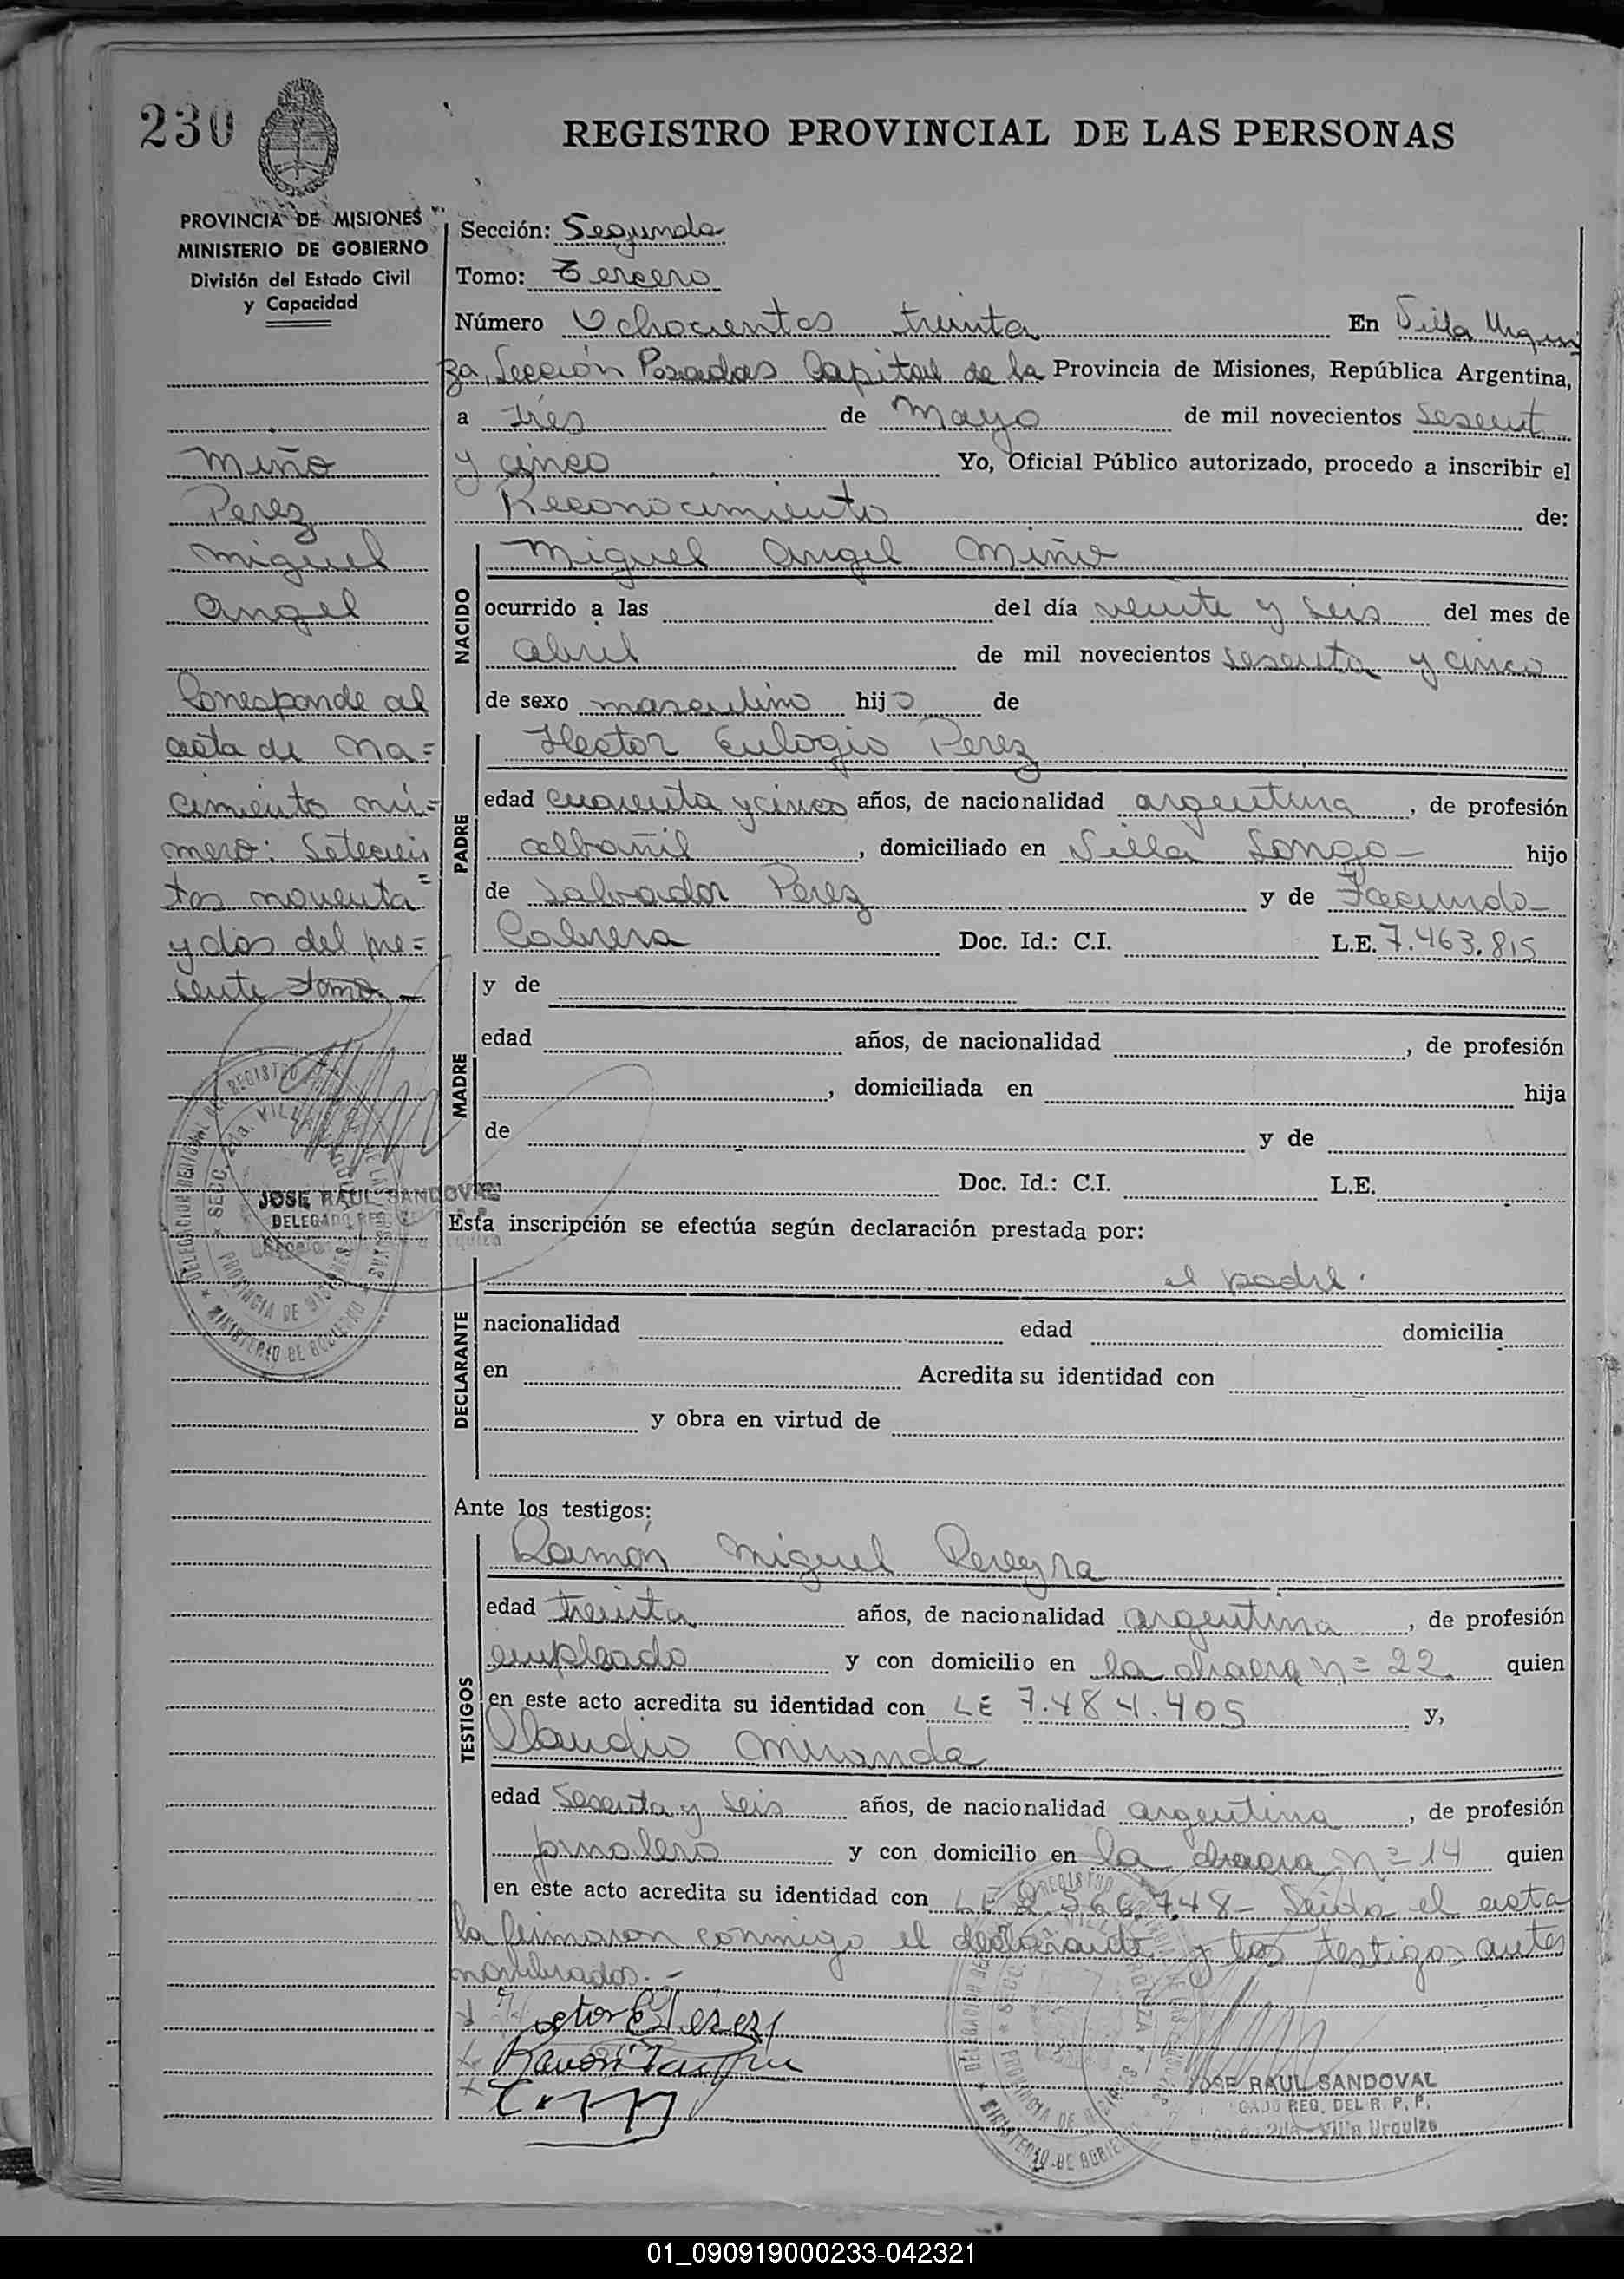 230
REGISTRO PROVINCIAL DE LAS PERSONAS
PROVINCIA DE MISIONES
MINISTERIO DE GOBIERNO
División del Estado Civil
y Capacidad
Miño
Perez
Miguel
Angel
Corresponde al
acta de Na=
cimiento nú=
mero: Setecien
tos noventa=
y dos del pre=
sente tomo.-
JOSE RAUL SANDOVAL
DELEGADO REG.
Sección: Segunda
Tomo: Tercero
Número Ochocientos treinta En Villa Urqui
za, Sección Posadas Capital de la Provincia de Misiones, República Argentina,
a tres de Mayo de mil novecientos sesent
y cinco Yo, Oficial Público autorizado, procedo a inscribir el
Reconocimiento de:
NACIDO
Miguel Angel Miño
ocurrido a las del día veinte y seis del mes de
Abril de mil novecientos sesenta y cinco
de sexo masculino hijo de
PADRE
Hector Eulogio Perez
edad cuarenta y cinco años, de nacionalidad argentina, de profesión
albañil, domiciliado en Villa Longa- hijo
de Salvador Perez y de Facundo-
Cabrera Doc. Id.: C.I. L.E. 7.463.815
MADRE
y de
edad años, de nacionalidad , de profesión
, domiciliada en hija
de y de
Doc. Id.: C.I. L.E.
Esta inscripción se efectúa según declaración prestada por:
DECLARANTE
el padre.
nacionalidad edad domicilia
en Acredita su identidad con
y obra en virtud de
Ante los testigos:
TESTIGOS
Ramón Miguel Pereyra
edad treinta años, de nacionalidad argentina, de profesión
empleado y con domicilio en la chacra Nº 22 quien
en este acto acredita su identidad con LE 7.484.405 y,
Claudio Miranda
edad Sesenta y Seis años, de nacionalidad argentina, de profesión
jornalero y con domicilio en la chacra Nº 14 quien
en este acto acredita su identidad con LE 2.366.748- Leida el acta
la firmaron conmigo el declarante y los testigos antes
nombrados.-
Hector E Perez
JOSE RAUL SANDOVAL
REG. DEL R. P. P.
Villa Urquiza
01_090919000233-042321